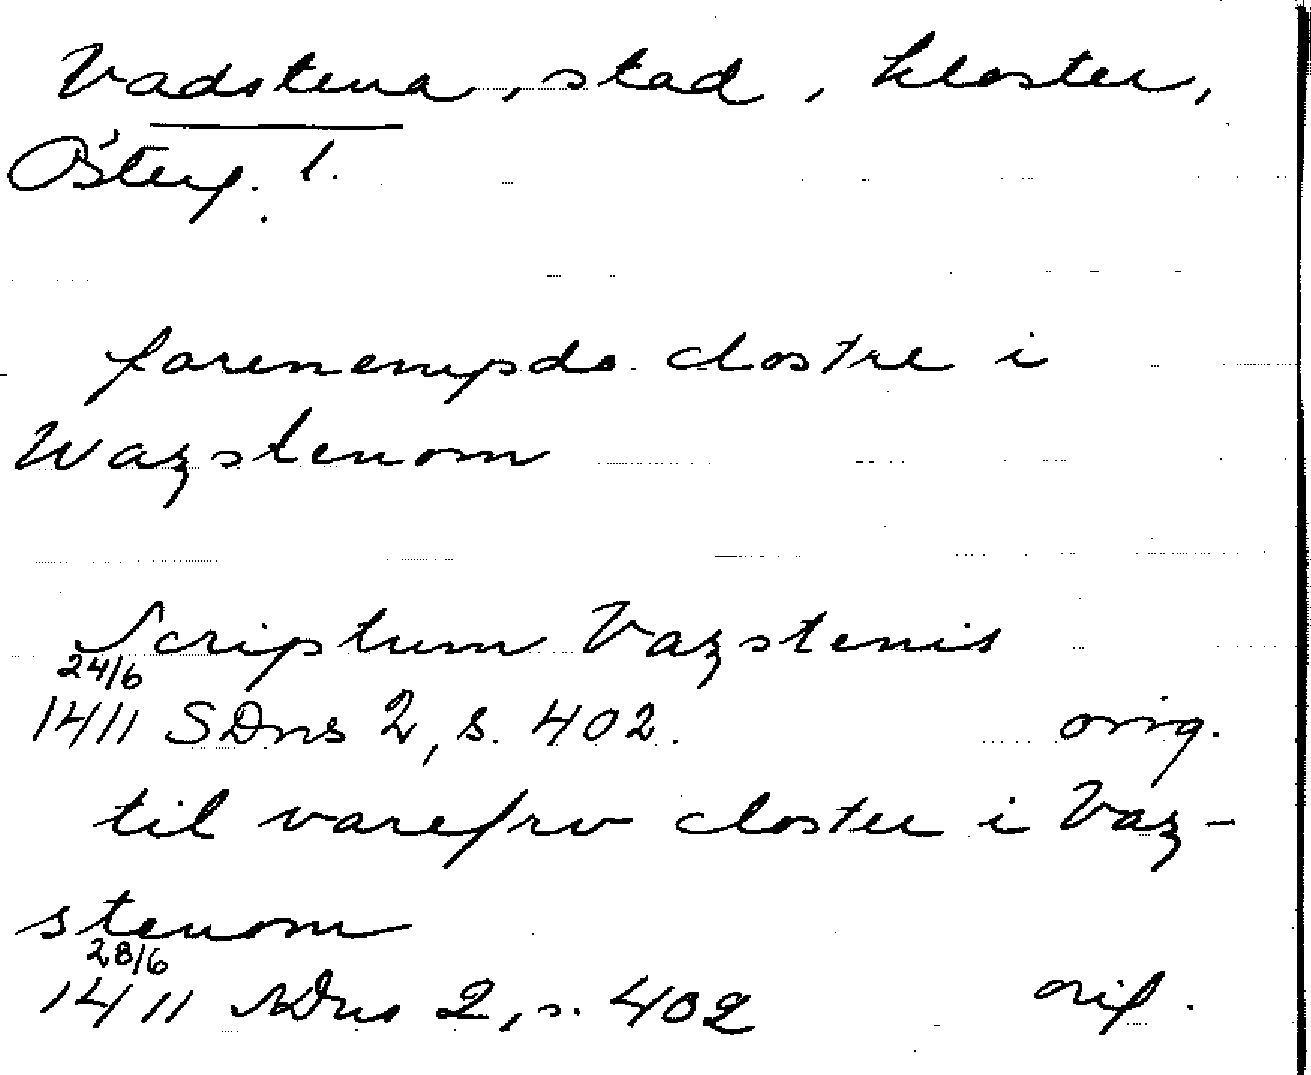 Vadstena, stad, kloster,
Österg. l.
forenempdo clostre i
Wazstenom
Scriptum Vazstenis
24/6
1411 SDns 2, s. 402. orig.
til varefrv closter i Vaz-
stenom
28/6
1411 SDns 2, s. 402 orig.